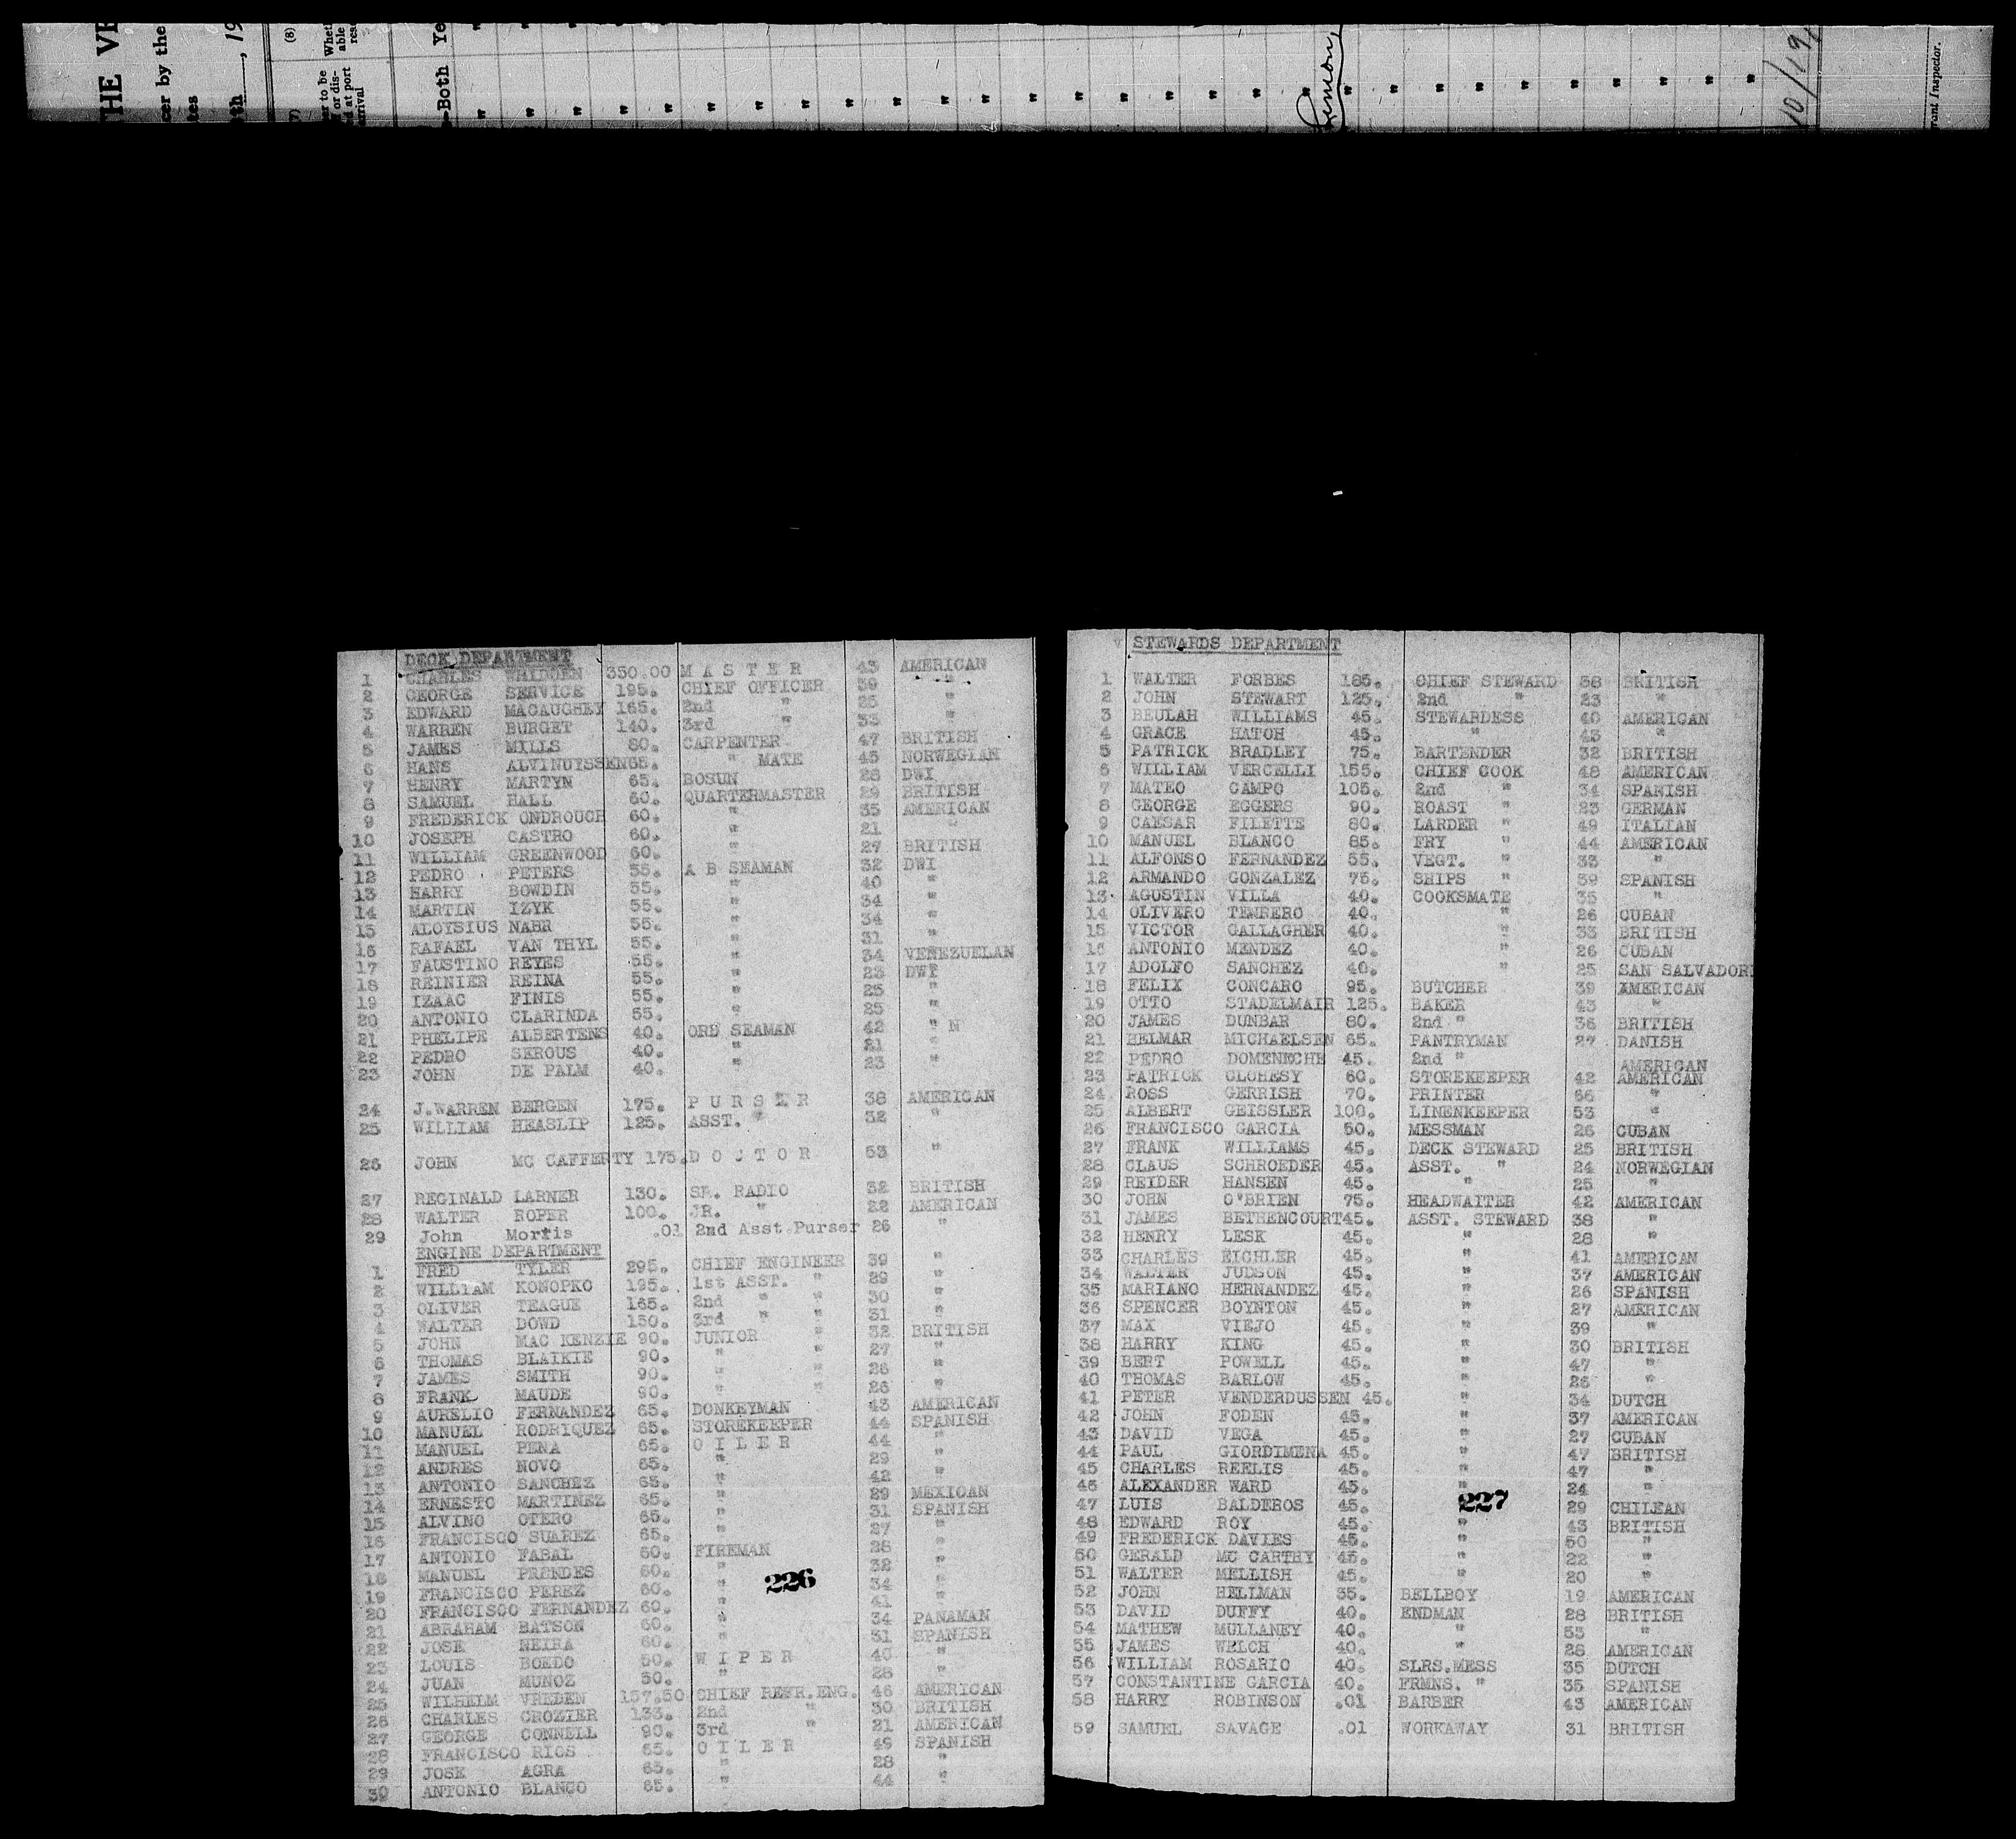 THE
cer by the
tes
th, 19
(8)
Whet
able
res
er to be
or dis-
d at port
arrival
—Both Ye
" " " " " " " " " " " " " " " " " " " " " " " " " " " "
10/19/
rant Inspector.
DECK DEPARTMENT
1 CHARLES WHIDDEN 350.00 M A S T E R 43 AMERICAN
2 GEORGE SERVICE 195. CHIEF OFFICER 39 "
3 EDWARD MACAUGHEY 165. 2nd " 25 "
4 WARREN BURGET 140. 3rd " 33 "
5 JAMES MILLS 80. CARPENTER 47 BRITISH
6 HANS ALVINUYSSEN 65. " MATE 45 NORWEGIAN
7 HENRY MARTYN 65. BOSUN 28 DWI
8 SAMUEL HALL 60. QUARTERMASTER 29 BRITISH
9 FREDERICK ONDROUCH 60. " 35 AMERICAN
10 JOSEPH CASTRO 60. " 21 "
11 WILLIAM GREENWOOD 60. " 27 BRITISH
12 PEDRO PETERS 55. A B SEAMAN 32 DWI
13 HARRY BOWDIN 55. " 40 "
14 MARTIN IZYK 55. " 34 "
15 ALOYSIUS NAHR 55. " 34 "
16 RAFAEL VAN THYL 55. " 31 "
17 FAUSTINO REYES 55. " 34 VENEZUELAN
18 REINIER REINA 55. " 23 DWI
19 IZAAC FINIS 55. " 25 "
20 ANTONIO CLARINDA 55. " 25 "
21 PHELIPE ALBERTENS 40. ORD SEAMAN 42 " N
22 PEDRO SEROUS 40. " 21 "
23 JOHN DE PALM 40. " 23 "
24 J.WARREN BERGEN 175. P U R S E R 38 AMERICAN
25 WILLIAM HEASLIP 125. ASST. " 32 "
26 JOHN MC CAFFERTY 175. D O C T O R 53 "
27 REGINALD LARNER 130. SR. RADIO 32 BRITISH
28 WALTER ROPER 100. JR. " 22 AMERICAN
29 John Morris .01 2nd Asst.Purser 26 "
ENGINE DEPARTMENT
1 FRED TYLER 295. CHIEF ENGINEER 39 "
2 WILLIAM KONOPKO 195. 1st ASST. " 29 "
3 OLIVER TEAGUE 165. 2nd " " 30 "
4 WALTER DOWD 150. 3rd " " 31 "
5 JOHN MAC KENZIE 90. JUNIOR " 32 BRITISH
6 THOMAS BLAIKIE 90. " " 27 "
7 JAMES SMITH 90. " " 26 "
8 FRANK MAUDE 90. " " 26 "
9 AURELIO FERNANDEZ 65. DONKEYMAN 43 AMERICAN
10 MANUEL RODRIQUEZ 65. STOREKEEPER 44 SPANISH
11 MANUEL PENA 65. O I L E R 44 "
12 ANDRES NOVO 65. " 29 "
13 ANTONIO SANCHEZ 65. " 42 "
14 ERNESTO MARTINEZ 65. " 29 MEXICAN
15 ALVINO OTERO 65. " 31 SPANISH
16 FRANCISCO SUAREZ 65. " 27 "
17 ANTONIO FABAL 60. FIREMAN 28 "
18 MANUEL PRENDES 60. " 32 "
19 FRANCISCO PEREZ 60. " 34 "
20 FRANCISCO FERNANDEZ 60. " 41 "
21 ABRAHAM BATSON 60. " 34 PANAMAN
22 JOSE NEIRA 60. " 31 SPANISH
23 LOUIS BOEDO 50. W I P E R 40 "
24 JUAN MUNOZ 50. " 28 "
25 WILHELM VREDEN 157.50 CHIEF REFR.ENG. 46 AMERICAN
26 CHARLES CROZIER 133. 2nd " 30 BRITISH
27 GEORGE CONNELL 90. 3rd " 21 AMERICAN
28 FRANCISCO RIOS 65. O I L E R 49 SPANISH
29 JOSE AGRA 65. " 28 "
30 ANTONIO BLANCO 65. " 44 "
226
STEWARDS DEPARTMENT
1 WALTER FORBES 185. CHIEF STEWARD 38 BRITISH
2 JOHN STEWART 125. 2nd " 23 "
3 BEULAH WILLIAMS 45. STEWARDESS 40 AMERICAN
4 GRACE HATCH 45. " 43 "
5 PATRICK BRADLEY 75. BARTENDER 32 BRITISH
6 WILLIAM VERCELLI 155. CHIEF COOK 48 AMERICAN
7 MATEO CAMPO 105. 2nd " 34 SPANISH
8 GEORGE EGGERS 90. ROAST " 23 GERMAN
9 CAESAR FILETTE 80. LARDER " 49 ITALIAN
10 MANUEL BLANCO 85. FRY " 44 AMERICAN
11 ALFONSO FERNANDEZ 55. VEGT. " 33 "
12 ARMANDO GONZALEZ 75. SHIPS " 39 SPANISH
13 AGUSTIN VILLA 40. COOKSMATE 35 "
14 OLIVERO TENRERO 40. " 26 CUBAN
15 VICTOR GALLAGHER 40. " 33 BRITISH
16 ANTONIO MENDEZ 40. " 26 CUBAN
17 ADOLFO SANCHEZ 40. " 25 SAN SALVADOR
18 FELIX CONCARO 95. BUTCHER 39 AMERICAN
19 OTTO STADELMAIR 125. BAKER 43 "
20 JAMES DUNBAR 80. 2nd " 36 BRITISH
21 HELMAR MICHAELSEN 65. PANTRYMAN 27 DANISH
22 PEDRO DOMENECHH 45. 2nd " AMERICAN
23 PATRICK CLOHESY 60. STOREKEEPER 42 AMERICAN
24 ROSS GERRISH 70. PRINTER 66 "
25 ALBERT GEISSLER 100. LINENKEEPER 53 "
26 FRANCISCO GARCIA 50. MESSMAN 26 CUBAN
27 FRANK WILLIAMS 45. DECK STEWARD 25 BRITISH
28 CLAUS SCHROEDER 45. ASST. " 24 NORWEGIAN
29 REIDER HANSEN 45. " 25 "
30 JOHN O'BRIEN 75. HEADWAITER 42 AMERICAN
31 JAMES BETHENCOURT 45. ASST. STEWARD 38 "
32 HENRY LESK 45. " 28 "
33 CHARLES EICHLER 45. " 41 AMERICAN
34 WALTER JUDSON 45. " 37 AMERICAN
35 MARIANO HERNANDEZ 45. " 26 SPANISH
36 SPENCER BOYNTON 45. " 27 AMERICAN
37 MAX VIEJO 45. " 39 "
38 HARRY KING 45. " 30 BRITISH
39 BERT POWELL 45. " 47 "
40 THOMAS BARLOW 45. " 26 "
41 PETER VENDERDUSSEN 45. " 34 DUTCH
42 JOHN FODEN 45. " 37 AMERICAN
43 DAVID VEGA 45. " 27 CUBAN
44 PAUL GIORDIMENA 45. " 47 BRITISH
45 CHARLES REELIS 45. " 47 "
46 ALEXANDER WARD 45. " 24 "
47 LUIS BALDEROS 45. 227 29 CHILEAN
48 EDWARD ROY 45. " 43 BRITISH
49 FREDERICK DAVIES 45. " 50 "
50 GERALD MC CARTHY 45. " 22 "
51 WALTER MELLISH 45. " 20 "
52 JOHN HELLMAN 35. BELLBOY 19 AMERICAN
53 DAVID DUFFY 40. ENDMAN 28 BRITISH
54 MATHEW MULLANEY 40. " 53 "
55 JAMES WELCH 40. " 28 AMERICAN
56 WILLIAM ROSARIO 40. SLRS.MESS 35 DUTCH
57 CONSTANTINE GARCIA 40. FRMNS. " 35 SPANISH
58 HARRY ROBINSON .01 BARBER 43 AMERICAN
59 SAMUEL SAVAGE .01 WORKAWAY 31 BRITISH